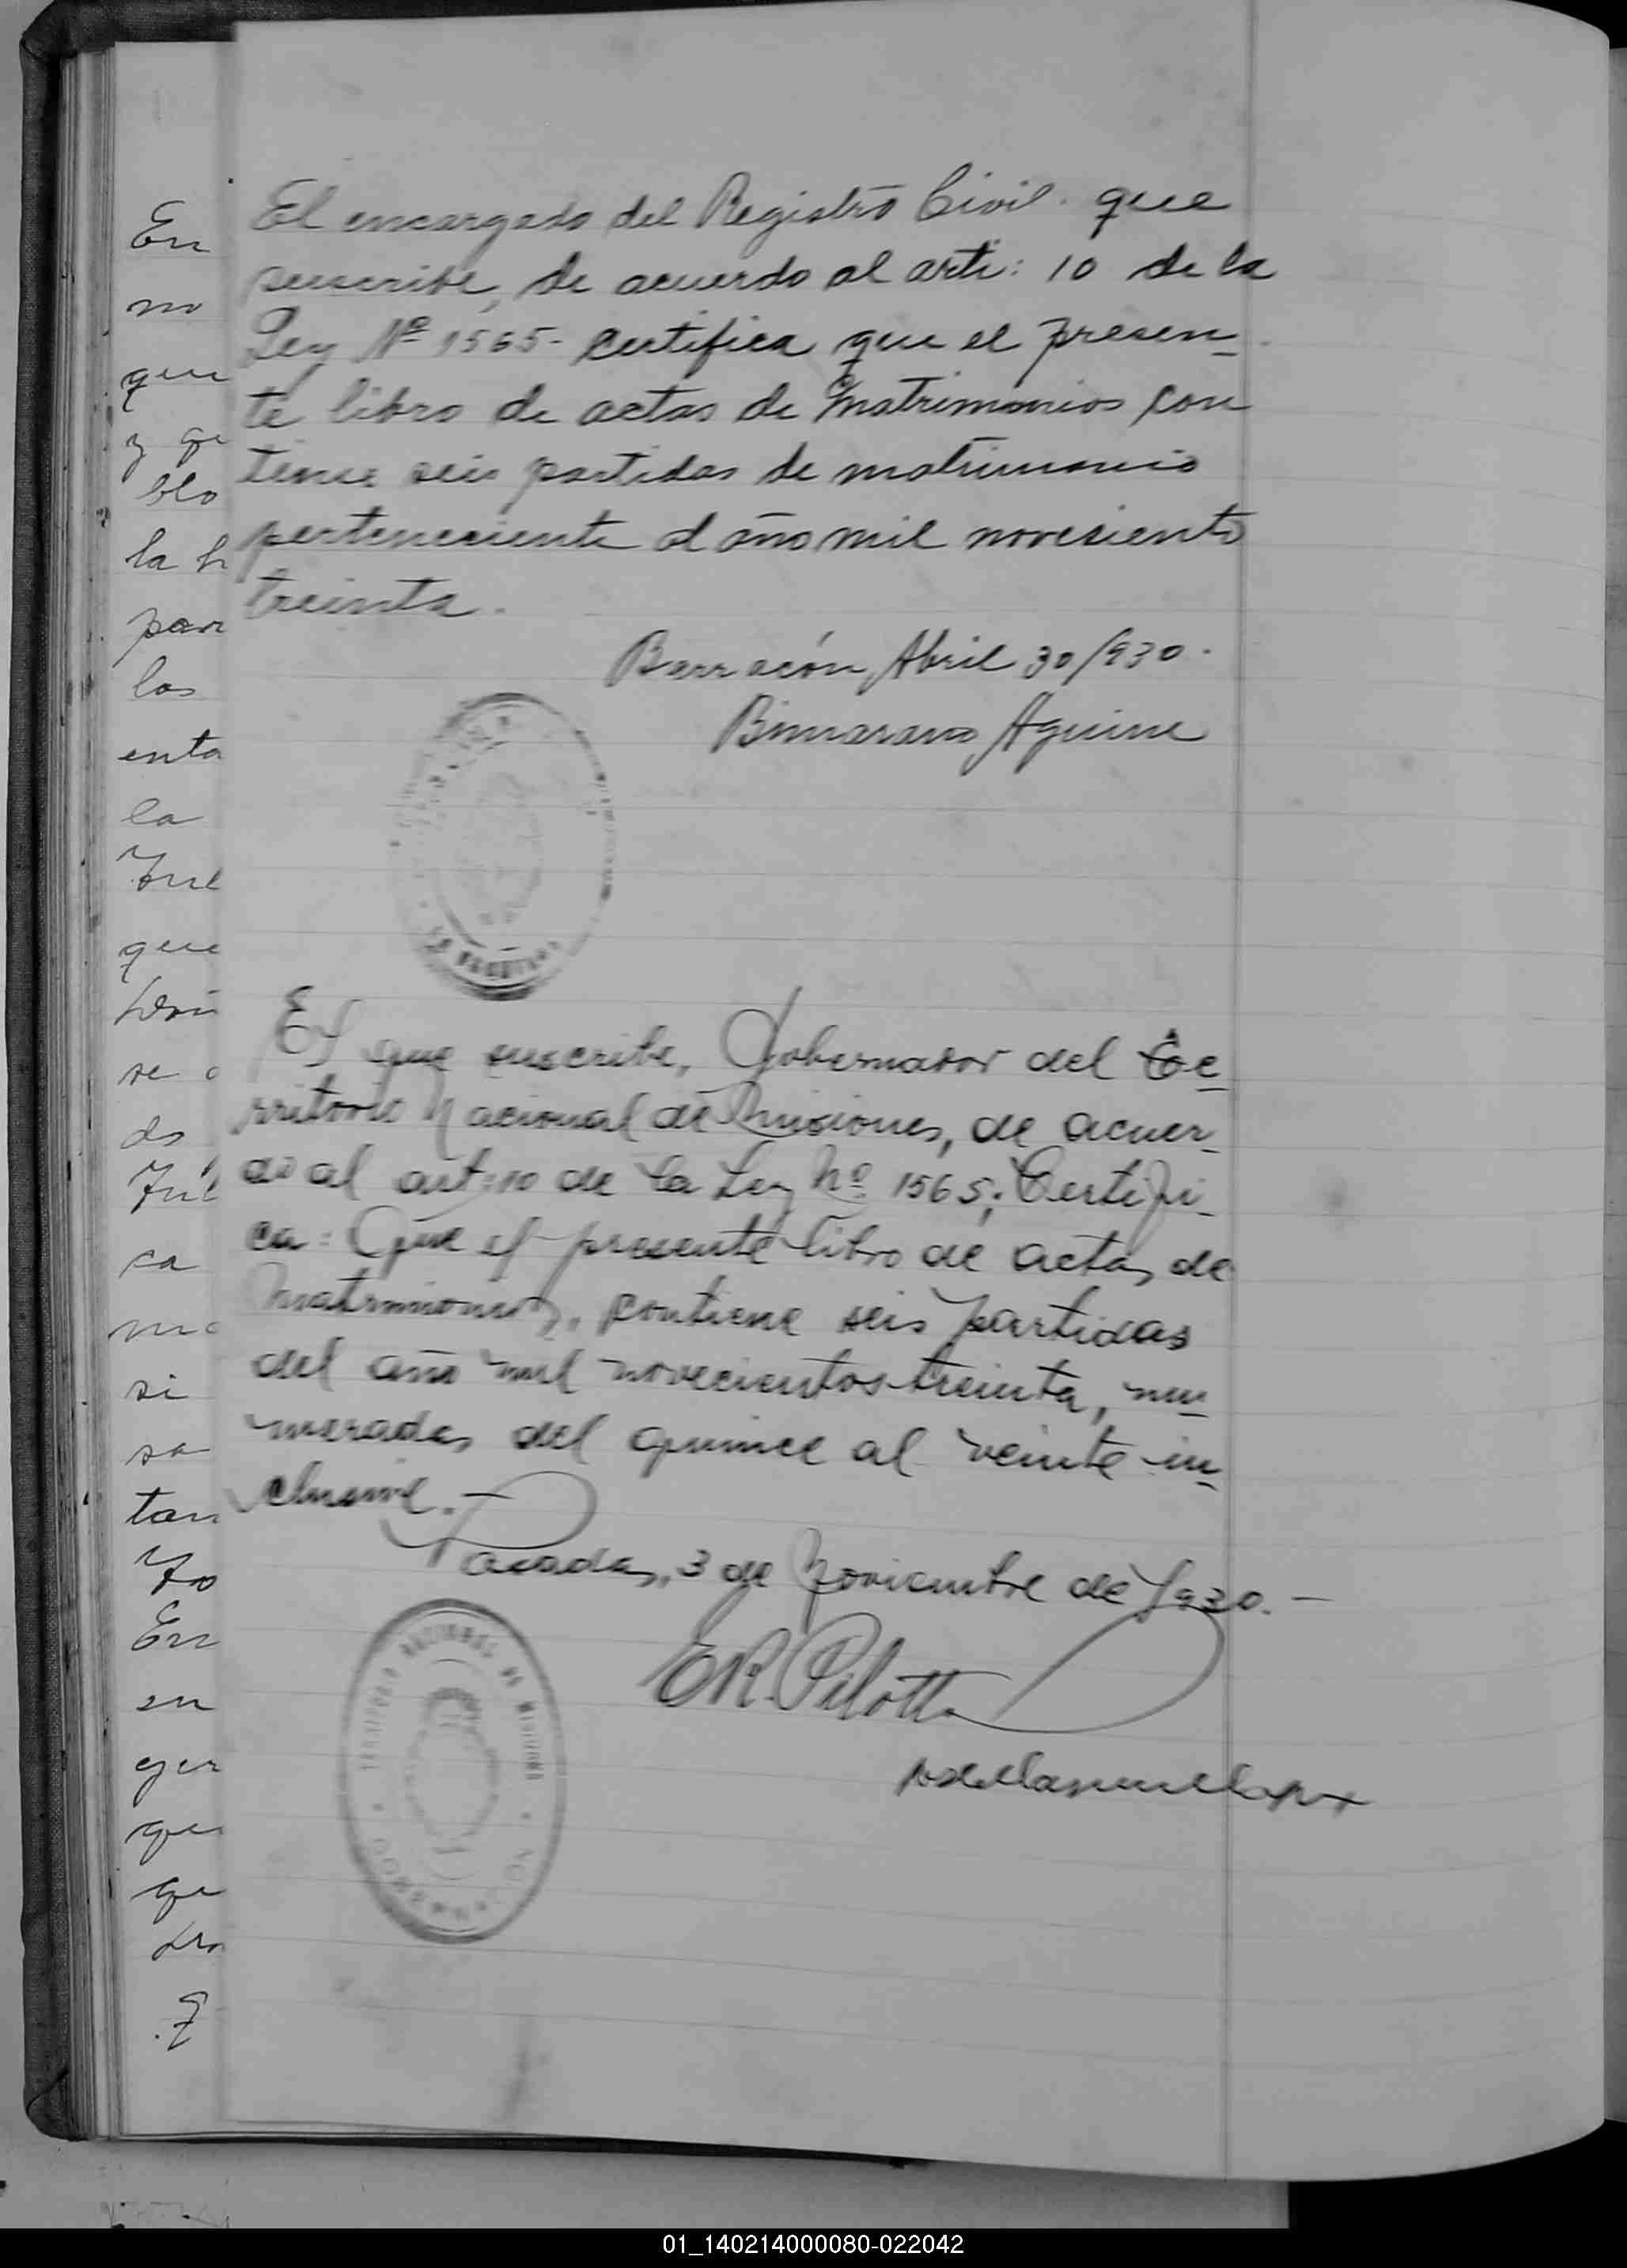 El encargado del Registro Civil. que
suscribe, de acuerdo al arti: 10 de la
Ley Nº 1565- certifica que el presen-
te libro de actas de Matrimonios con
tiene seis partidas de matrimonio
perteneciente al año mil novesiento
treinta.
Barracón, Abril 30/930.
Aguirre
El que suscribe, Gobernador del Te-
rritorio Nacional de Misiones, de acuer-
do al art: 10 de la Ley Nº 1565; Certifi-
ca: Que el presente libro de actas de
Matrimonios, contiene seis partidas
del año mil novecientos treinta, nu-
meradas del quince al veinte in-
clusive.-
Posadas, 3 de Noviembre de 1930.-
TERRITORIO NACIONAL DE MISIONES
E.R. Pilotto
En
no
que
y qe
blo
la h
par
los
enta
la
que
se
do
ca
si
sa
tan
Yo
En
en
que
01_140214000080-022042